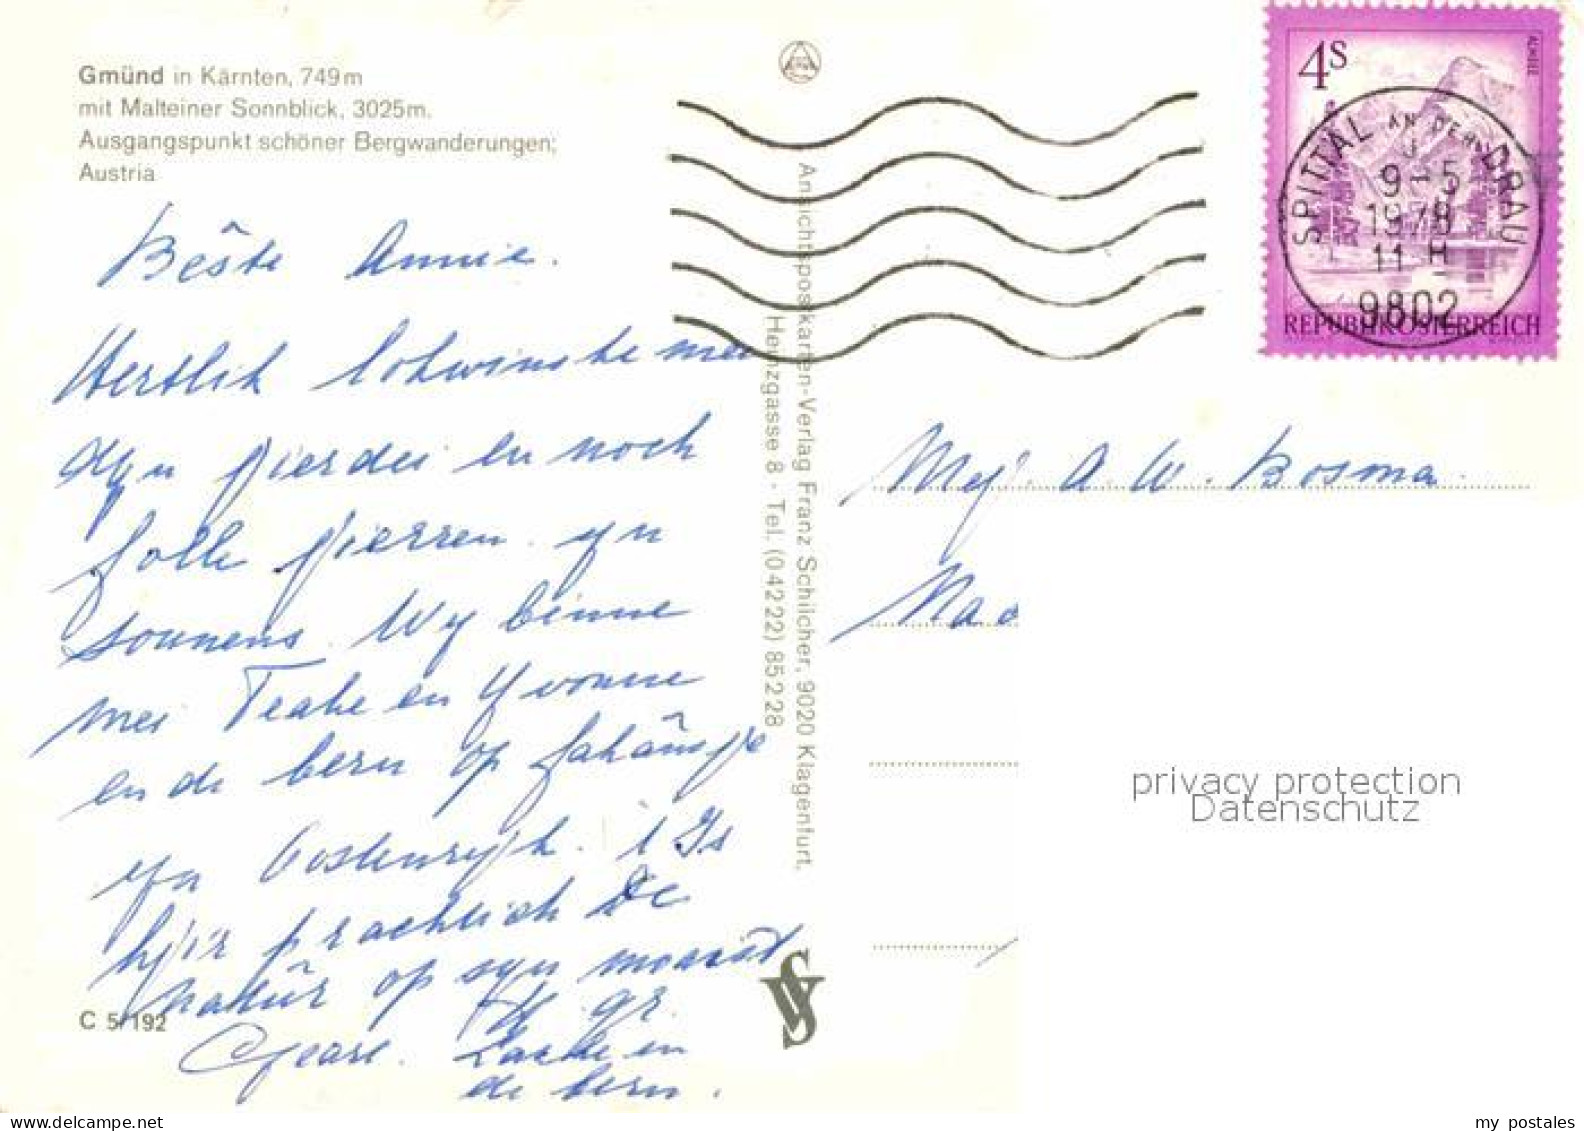 Gmünd in Kärnten, 749m
mit Malteiner Sonnblick, 3025m.
Ausgangspunkt schöner Bergwanderungen;
Austria
4S
ALMSEE
SPITTAL AN DER DRAU
9-5
1978
11 H
9802
REPUBLIK ÖSTERREICH
Bêste Annie.
Hertlik lokwinske mei
dyn fjierdei en noch
folle jierren yn
sounens. Wy binne
mei Teake en Yvonne
en de bern op fakânsje
yn Oostenryk. 't Is
hjir prachtich de
natûr op syn moaist
gr.
Geart. en
de bern.
Mej. A. W. Bosma.
Ansichtspostkarten-Verlag Franz Schilcher, 9020 Klagenfurt,
Henzgasse 8 - Tel. (04222) 85228
C 5/192
privacy protection
Datenschutz
my postales